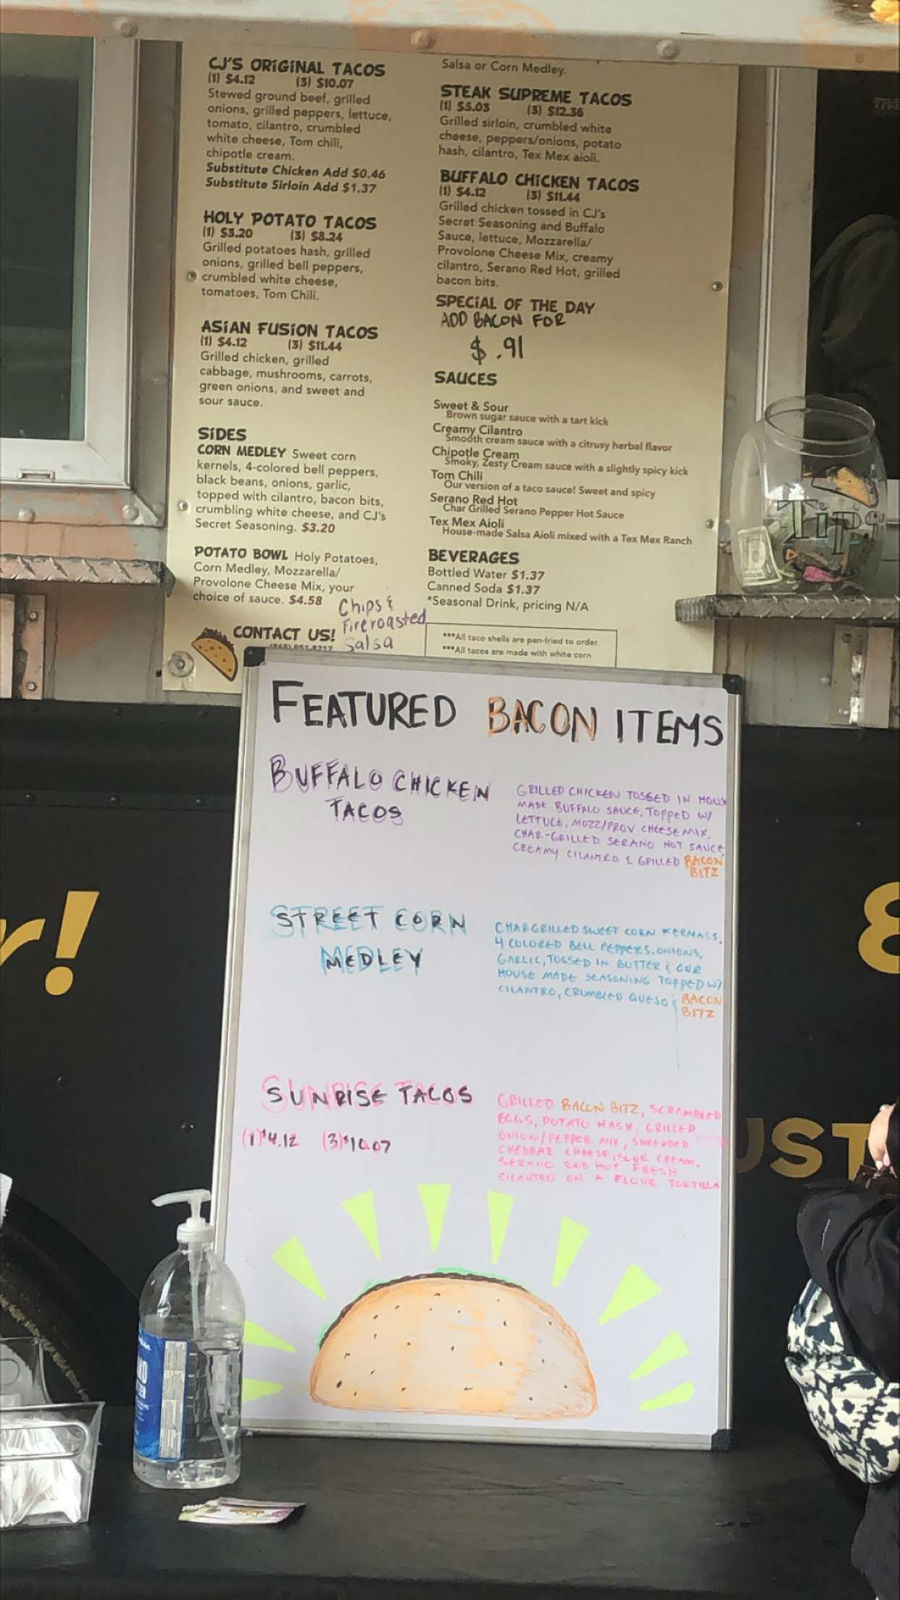 CJ'S ORIGINAL TACOS
(1) $4.12 (3) $10.07
Stewed ground beef, grilled
onions, grilled peppers, lettuce,
tomato, cilantro, crumbled
white cheese, Tom chili,
chipotle cream.
Substitute Chicken Add $0.46
Substitute Sirloin Add $1.37
HOLY POTATO TACOS
(1) $3.20 (3) $8.24
Grilled potatoes hash, grilled
onions, grilled bell peppers,
crumbled white cheese,
tomatoes, Tom Chili.
ASIAN FUSION TACOS
(1) $4.12 (3) $11.44
Grilled chicken, grilled
cabbage, mushrooms, carrots,
green onions, and sweet and
sour sauce.
SIDES
CORN MEDLEY Sweet corn
kernels, 4-colored bell peppers,
black beans, onions, garlic,
topped with cilantro, bacon bits,
crumbling white cheese, and CJ's
Secret Seasoning. $3.20
POTATO BOWL Holy Potatoes,
Corn Medley, Mozzarella/
Provolone Cheese Mix, your
choice of sauce. $4.58
Chips &
Fireroasted
Salsa
CONTACT US!
Salsa or Corn Medley.
STEAK SUPREME TACOS
(1) $5.03 (3) $12.36
Grilled sirloin, crumbled white
cheese, peppers/onions, potato
hash, cilantro, Tex Mex aioli.
BUFFALO CHICKEN TACOS
(1) $4.12 (3) $11.44
Grilled chicken tossed in CJ's
Secret Seasoning and Buffalo
Sauce, lettuce, Mozzarella/
Provolone Cheese Mix, creamy
cilantro, Serano Red Hot, grilled
bacon bits.
SPECIAL OF THE DAY
ADD BACON FOR
$.91
SAUCES
Sweet & Sour
Brown sugar sauce with a tart kick
Creamy Cilantro
Smooth cream sauce with a citrusy herbal flavor
Chipotle Cream
Smoky, Zesty Cream sauce with a slightly spicy kick
Tom Chili
Our version of a taco sauce! Sweet and spicy
Serano Red Hot
Char Grilled Serano Pepper Hot Sauce
Tex Mex Aioli
House-made Salsa Aioli mixed with a Tex Mex Ranch
BEVERAGES
Bottled Water $1.37
Canned Soda $1.37
*Seasonal Drink, pricing N/A
***All taco shells are pan-fried to order.
***All tacos are made with white corn
TIPS
FEATURED BACON ITEMS
BUFFALO CHICKEN
TACOS
GRILLED CHICKEN TOSSED IN HOUSE
MADE BUFFALO SAUCE, TOPPED W/
LETTUCE, MOZZ/PROV CHEESE MIX,
CHAR-GRILLED SERANO HOT SAUCE
CREAMY CILANTRO & GRILLED BACON
BITZ
STREET CORN
MEDLEY
CHARGRILLED SWEET CORN KERNALS,
4 COLORED BELL PEPPERS, ONIONS,
GARLIC, TOSSED IN BUTTER & OUR
HOUSE MADE SEASONING TOPPED W/
CILANTRO, CRUMBLED QUESO & BACON
BITZ
SUNRISE TACOS
(1) $4.12 (3) $10.07
GRILLED BACON BITZ, SCRAMBLED
EGGS, POTATO HASH, GRILLED
ONION/PEPPER MIX, SHREDDED
CHEDDAR CHEESE, SOUR CREAM,
SERANO RED HOT FRESH
CILANTRO ON A FLOUR TORTILLA
r!
8
UST